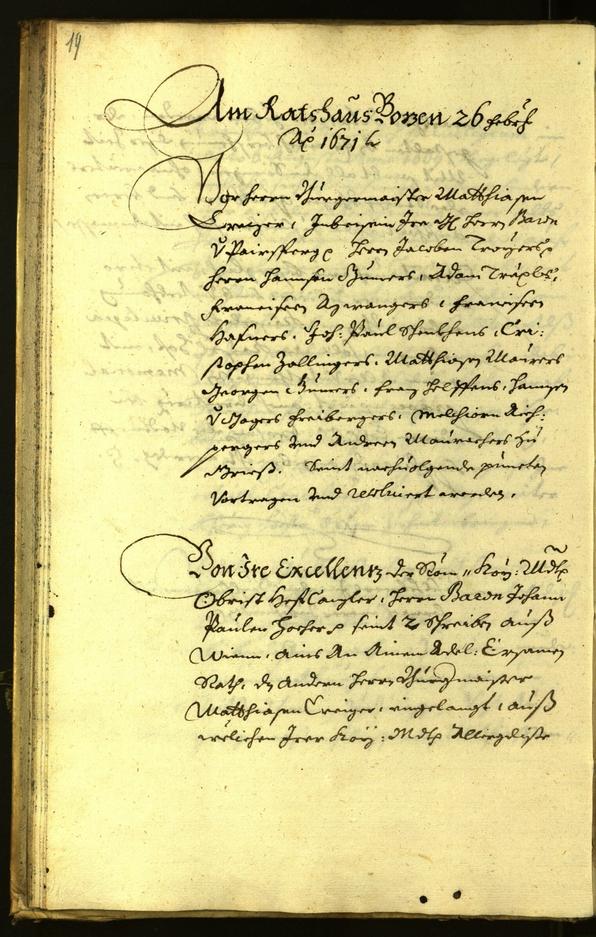 19
Am Ratshaus Bozen 26 Febr:
Aõ 1671 ħ
Vor Herrn Bürgermaister Matthiasen
Creizer, Inbeisein Ire Herrn Baron
V. Pairsperg Herrn Jacoben Troyers
Herrn Hannsen Gumers, Adam Träxls,
Francisen Azwangers, Francisen
Hafners, Joh: Paul Schulthes, Cri:
stophen Zallingers, Matthiasen Maurers
Georgen Gumers, Franz Helffens, Hansen
V. Jagers Freibergers, Melchiorn Kirch:
pergers und Andreen Maurachers zu
Grieß. Seint nachuolgende puncten
Vortragen und resoluiert worden.
Von Ire Excellentz der Röm: Kay: Mtt
Obrist HofCanzler, Herrn Baron Johann
Paulen Hocher seint 2 Schreiben auß
Wienn, ains An Ainen Adel: Ersamen
Rath, dz andern Herrn Burgermaister
Matthiasen Creizer, eingelangt, auß
welichen Irer Kay: Mtt Allergdiste